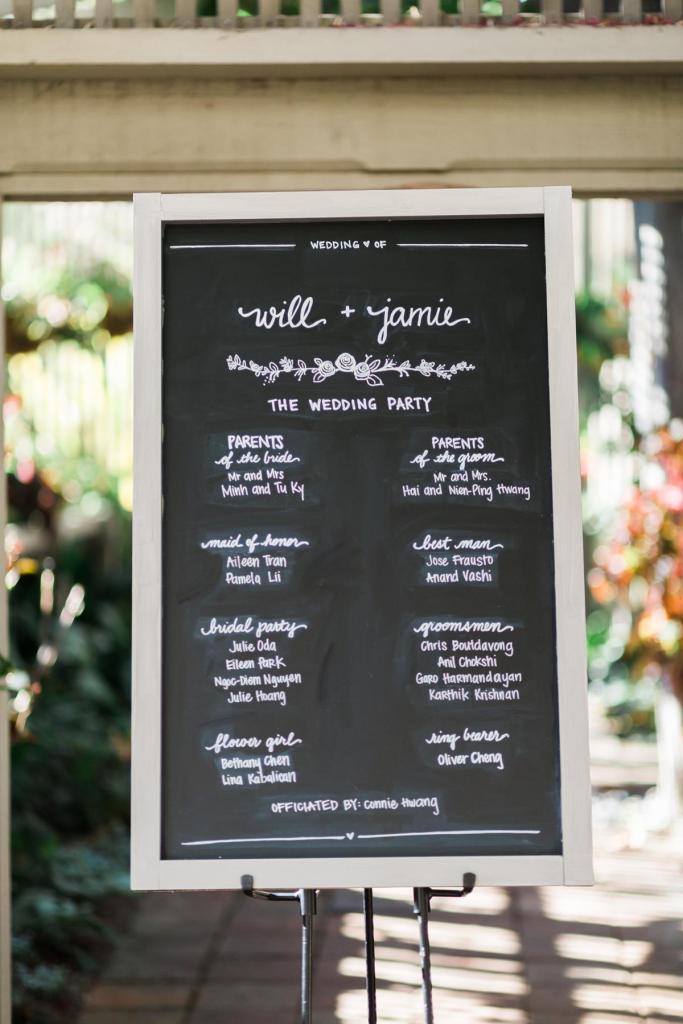 WEDDING ♥ OF
will + jamie
THE WEDDING PARTY
PARENTS
of the bride
Mr and Mrs
Minh and Tu Ky
PARENTS
of the groom
Mr and Mrs.
Hai and Nien-Ping Hwang
maid of honor
Aileen Tran
Pamela Lii
best man
Jose Frausto
Anand Vashi
bridal party
Julie Oda
Eileen Park
Ngoc-Diem Nguyen
Julie Hoang
groomsmen
Chris Boutdavong
Anil Chokshi
Garo Harmandayan
Karthik Krishnan
flower girl
Bethany Chen
Lina Kabalican
ring bearer
Oliver Cheng
OFFICIATED BY: Connie Hwang